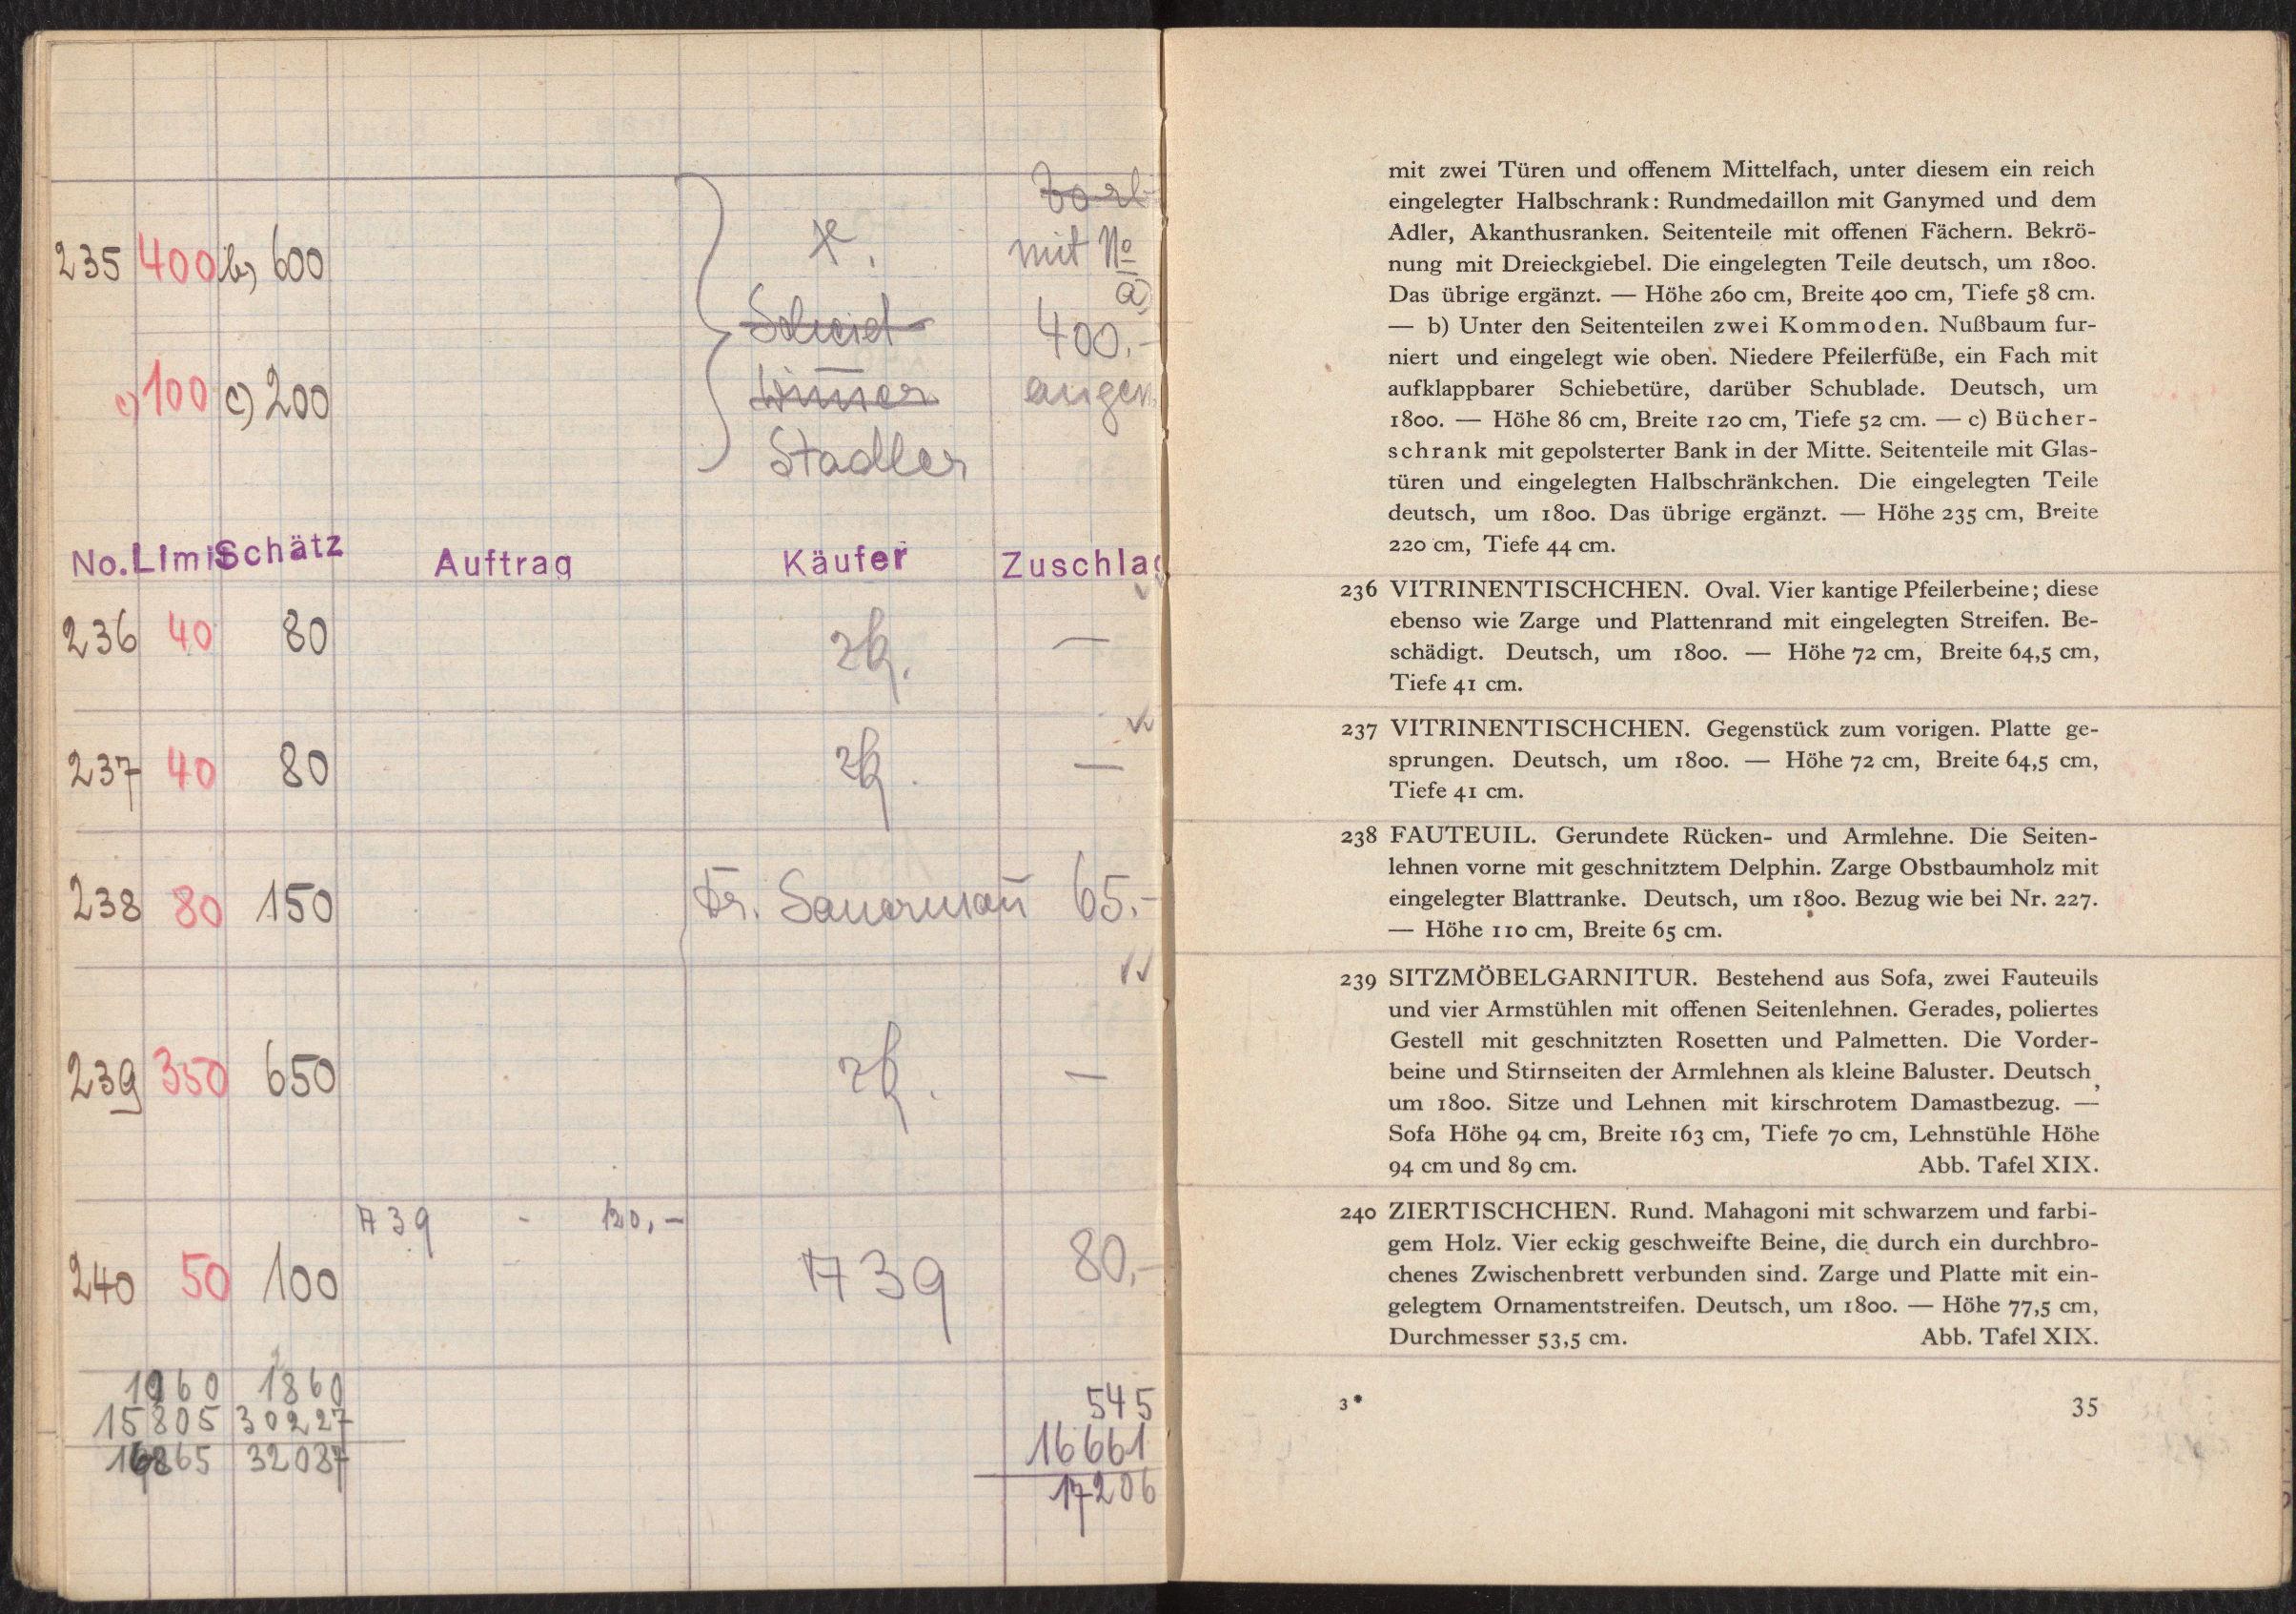 235 400 b) 600
mit No
a)
400.-
c) 100 c) 200
angen.
Stadler
No. Limit Schätz Auftrag Käufer Zuschlag
236 40 80 —
237 40 80 —
238 80 150 Dr. Sauermañ 65.-
239 350 650 —
A 39 - 120,-
240 50 100 A 39 80,-
1060 1860 545
15805 30227 16661
16865 32087 17206
mit zwei Türen und offenem Mittelfach, unter diesem ein reich
eingelegter Halbschrank: Rundmedaillon mit Ganymed und dem
Adler, Akanthusranken. Seitenteile mit offenen Fächern. Bekrö-
nung mit Dreieckgiebel. Die eingelegten Teile deutsch, um 1800.
Das übrige ergänzt. — Höhe 260 cm, Breite 400 cm, Tiefe 58 cm.
— b) Unter den Seitenteilen zwei Kommoden. Nußbaum fur-
niert und eingelegt wie oben. Niedere Pfeilerfüße, ein Fach mit
aufklappbarer Schiebetüre, darüber Schublade. Deutsch, um
1800. — Höhe 86 cm, Breite 120 cm, Tiefe 52 cm. — c) Bücher-
schrank mit gepolsterter Bank in der Mitte. Seitenteile mit Glas-
türen und eingelegten Halbschränkchen. Die eingelegten Teile
deutsch, um 1800. Das übrige ergänzt. — Höhe 235 cm, Breite
220 cm, Tiefe 44 cm.
236 VITRINENTISCHCHEN. Oval. Vier kantige Pfeilerbeine; diese
ebenso wie Zarge und Plattenrand mit eingelegten Streifen. Be-
schädigt. Deutsch, um 1800. — Höhe 72 cm, Breite 64,5 cm,
Tiefe 41 cm.
237 VITRINENTISCHCHEN. Gegenstück zum vorigen. Platte ge-
sprungen. Deutsch, um 1800. — Höhe 72 cm, Breite 64,5 cm,
Tiefe 41 cm.
238 FAUTEUIL. Gerundete Rücken- und Armlehne. Die Seiten-
lehnen vorne mit geschnitztem Delphin. Zarge Obstbaumholz mit
eingelegter Blattranke. Deutsch, um 1800. Bezug wie bei Nr. 227.
— Höhe 110 cm, Breite 65 cm.
239 SITZMÖBELGARNITUR. Bestehend aus Sofa, zwei Fauteuils
und vier Armstühlen mit offenen Seitenlehnen. Gerades, poliertes
Gestell mit geschnitzten Rosetten und Palmetten. Die Vorder-
beine und Stirnseiten der Armlehnen als kleine Baluster. Deutsch,
um 1800. Sitze und Lehnen mit kirschrotem Damastbezug. —
Sofa Höhe 94 cm, Breite 163 cm, Tiefe 70 cm, Lehnstühle Höhe
94 cm und 89 cm. Abb. Tafel XIX.
240 ZIERTISCHCHEN. Rund. Mahagoni mit schwarzem und farbi-
gem Holz. Vier eckig geschweifte Beine, die durch ein durchbro-
chenes Zwischenbrett verbunden sind. Zarge und Platte mit ein-
gelegtem Ornamentstreifen. Deutsch, um 1800. — Höhe 77,5 cm,
Durchmesser 53,5 cm. Abb. Tafel XIX.
3* 35